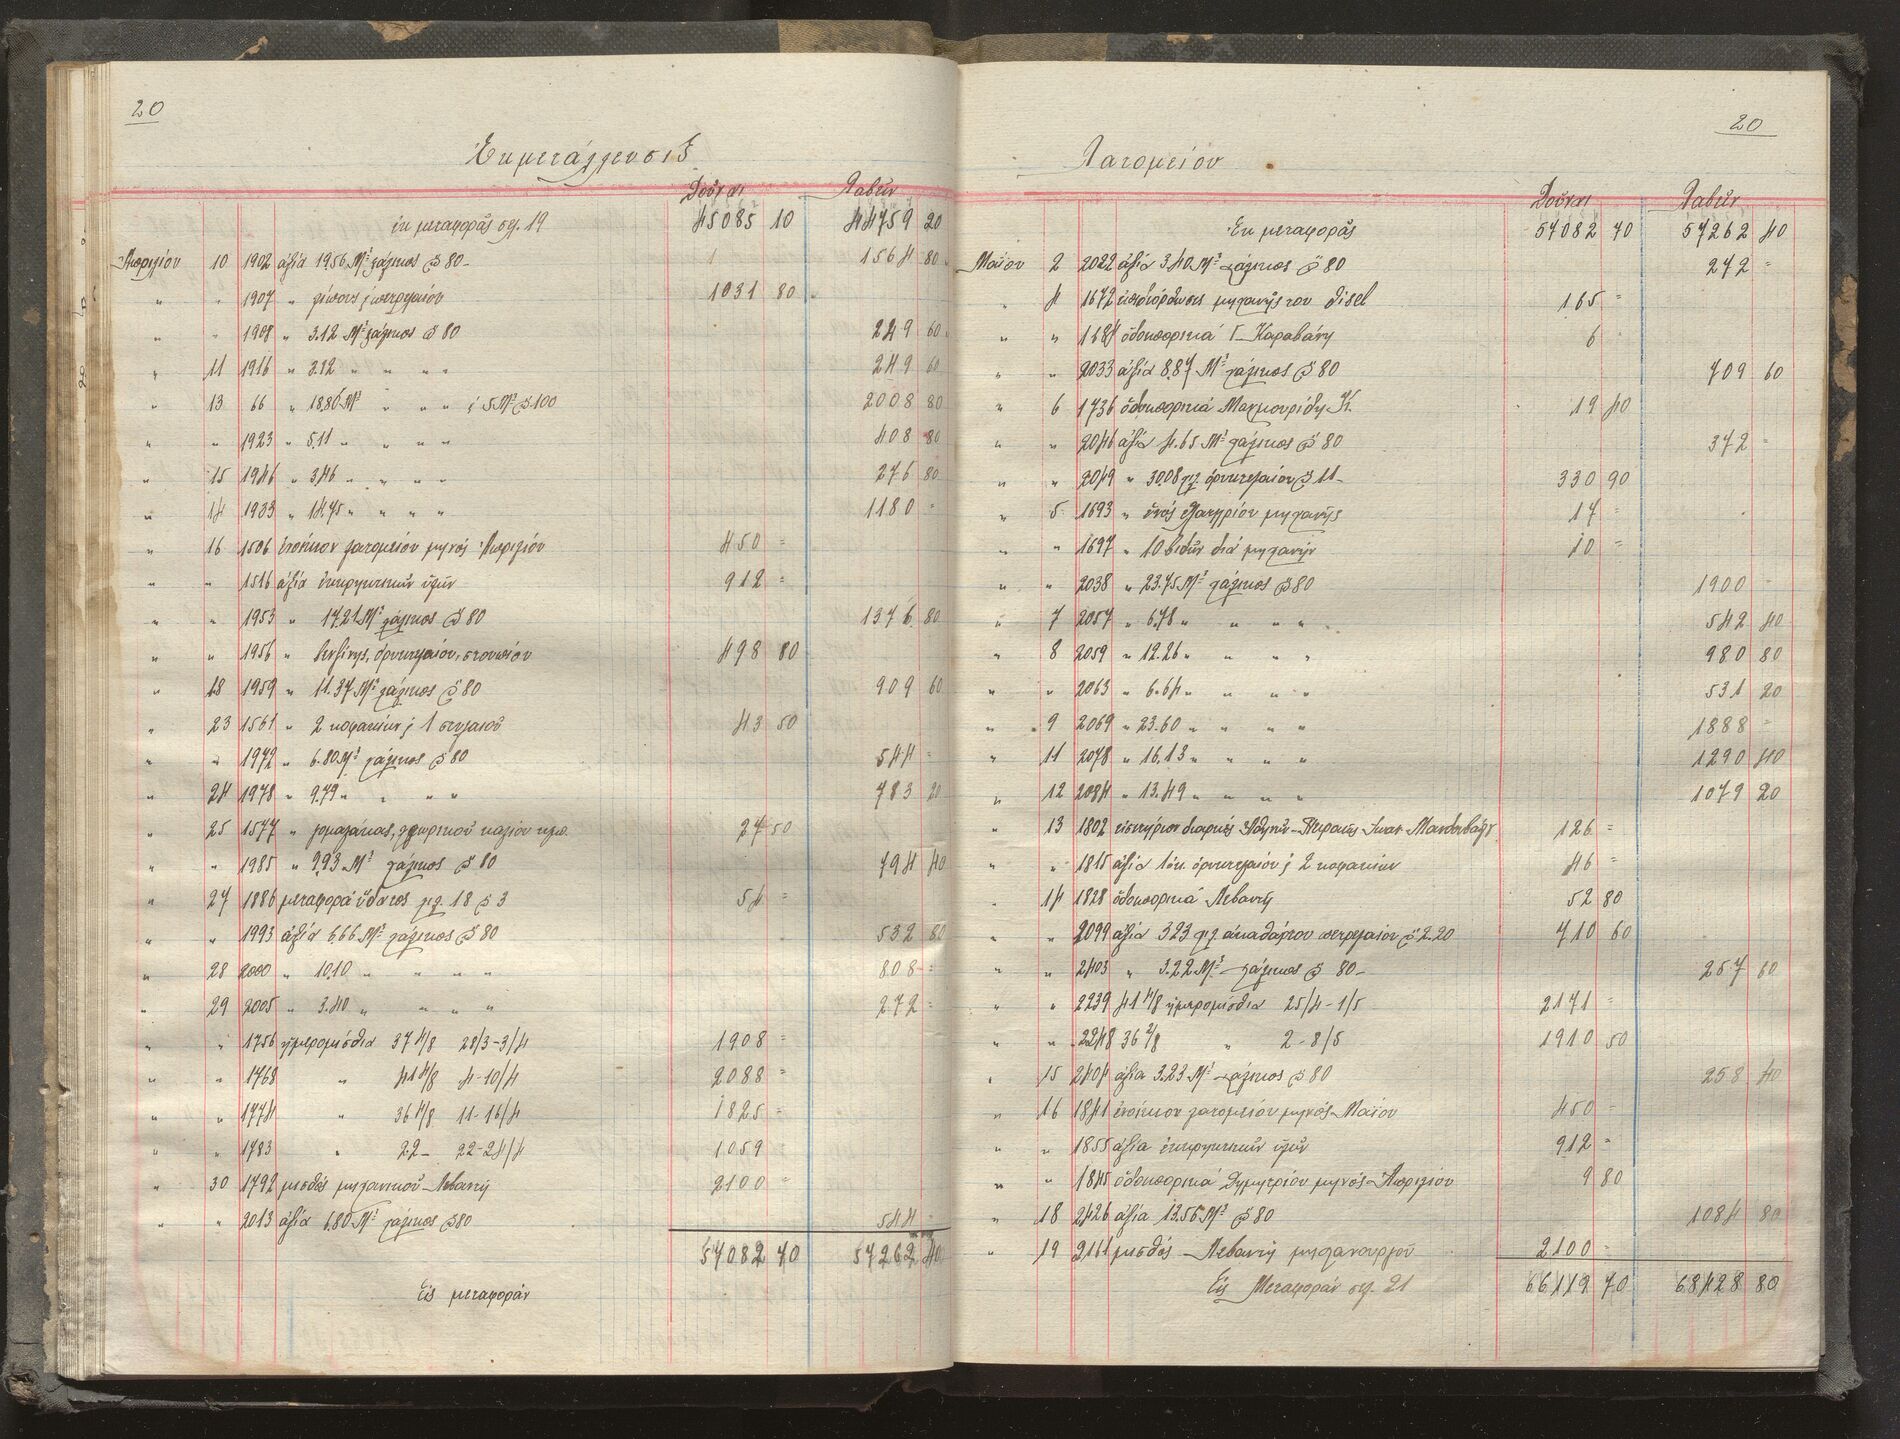 20
Ἐκμετάλλευσις
Δοῦναι Λαβεῖν
ἐκ μεταφορᾶς σελ. 19 45085 10 44759 20
Ἀπριλίου 10 1902 ἀξία 19.56 Μ³ χάλικος @ 80- 1564 80
" " 1907 " λίπους & πετρελαίου 1031 80
" " 1908 " 3.12 Μ³ χάλικος @ 80 249 60
" 11 1916 " 3.12 " " " " 249 60
" 13 66 " 18.86 Μ³ " " " & 5 Μ³ @ 100 2008 80
" " 1923 " 5.11 " " " " 408 80
" 15 1946 " 3.46 " " " " 276 80
" 14 1933 " 14.75 " " " " 1180 =
" 16 1506 ἐνοίκιον λατομείου μηνός Ἀπριλίου 450 =
" " 1516 ἀξία ἐκρηκτικῶν ὑλῶν 912 =
" " 1953 " 17.21 Μ³ χάλικος @ 80 1376 80
" " 1956 " βενζίνης, ὀρυκτελαίου, στουπίου 498 80
" 18 1959 " 11.37 Μ³ χάλικος @ 80 909 60
" 23 1561 " 2 κοφινίων & 1 στυλαιοῦ 43 50
" " 1972 " 6.80 Μ³ χάλικος @ 80 544 =
" 24 1978 " 9.79 " " " " 783 20
" 25 1577 " χλωρικοῦ καλίου 27 50
" " 1985 " 9.93 Μ³ χάλικος @ 80 794 40
" 27 1886 μεταφορά ὕδατος 18 @ 3 54 =
" " 1993 ἀξία 6.66 Μ³ χάλικος @ 80 532 80
" 28 2000 " 10.10 " " " " 808 =
" 29 2005 " 3.40 " " " " 272 =
" " 1756 ἡμερομίσθια 37 4/8 28/3-3/4 1908 =
" " 1768 " 41 4/8 4-10/4 2088 =
" " 1774 " 36 4/8 11-16/4 1825 =
" " 1783 " 22- 22-24/4 1059 =
" 30 1792 μισθός μηχανικοῦ Λεβαντῆ 2100 =
" " 2013 ἀξία 6.80 Μ³ χάλικος @ 80 544 =
57082 70 57262 40
Εἰς μεταφοράν
20
Λατομείου
Δοῦναι Λαβεῖν
Ἐκ μεταφορᾶς 57082 70 57262 40
Μαΐου 2 2022 ἀξία 3.40 Μ³ χάλικος @ 80 272 =
" 4 1672 ἐπιδιόρθωσις μηχανῆς του disel 165 =
" " 1684 ὁδοιπορικά Γ. Καραβάνη 6 =
" " 2033 ἀξία 8.87 Μ³ χάλικος @ 80 709 60
" 6 1736 ὁδοιπορικά Μαχμουρίδη Κ. 19 40
" " 2046 ἀξία 4.65 Μ³ χάλικος @ 80 372 =
" " 2049 " 30.08 χλγ. ὀρυκτελαίου @ 11- 330 90
" 5 1693 " ἑνός ἐλατηρίου μηχανῆς 17 =
" " 1697 " 10 βιδῶν διά μηχανήν 10 =
" " 2038 " 23.75 Μ³ χάλικος @ 80 1900 =
" 7 2057 " 6.78 " " " " 542 40
" 8 2059 " 12.26 " " " " 980 80
" " 2063 " 6.64 " " " " 531 20
" 9 2069 " 23.60 " " " " 1888 =
" 11 2078 " 16.13 " " " " 1290 40
" 12 2084 " 13.49 " " " " 1079 20
" 13 1802 εἰσιτήριον διαρκές Ἀθηνῶν-Πειραιῶς 126 =
" " 1815 ἀξία 1 ὀκ. ὀρυκτελαίου & 2 κοφινίων 46 =
" 14 1828 ὁδοιπορικά Λεβαντῆ 52 80
" " 2099 ἀξία 323 χλγ. ἀκαθάρτου πετρελαίου @ 2.20 710 60
" " 2403 " 3.22 Μ³ χάλικος @ 80- 257 60
" " 2239 41 4/8 ἡμερομίσθια 25/4-1/5 2171 =
" " 2248 36 2/8 " 2-8/5 1910 50
" 15 2404 ἀξία 3.23 Μ³ χάλικος @ 80 258 40
" 16 1841 ἐνοίκιον λατομείου μηνός Μαΐου 450 =
" " 1855 ἀξία ἐκρηκτικῶν ὑλῶν 912 =
" " 1845 ὁδοιπορικά Δημητρίου μηνός Ἀπριλίου 9 80
" 18 2426 ἀξία 13.56 Μ³ @ 80 1084 80
" 19 2161 μισθός Λεβαντῆ μηχανουργοῦ 2100 =
66119 70 68428 80
Εἰς Μεταφοράν σελ. 21